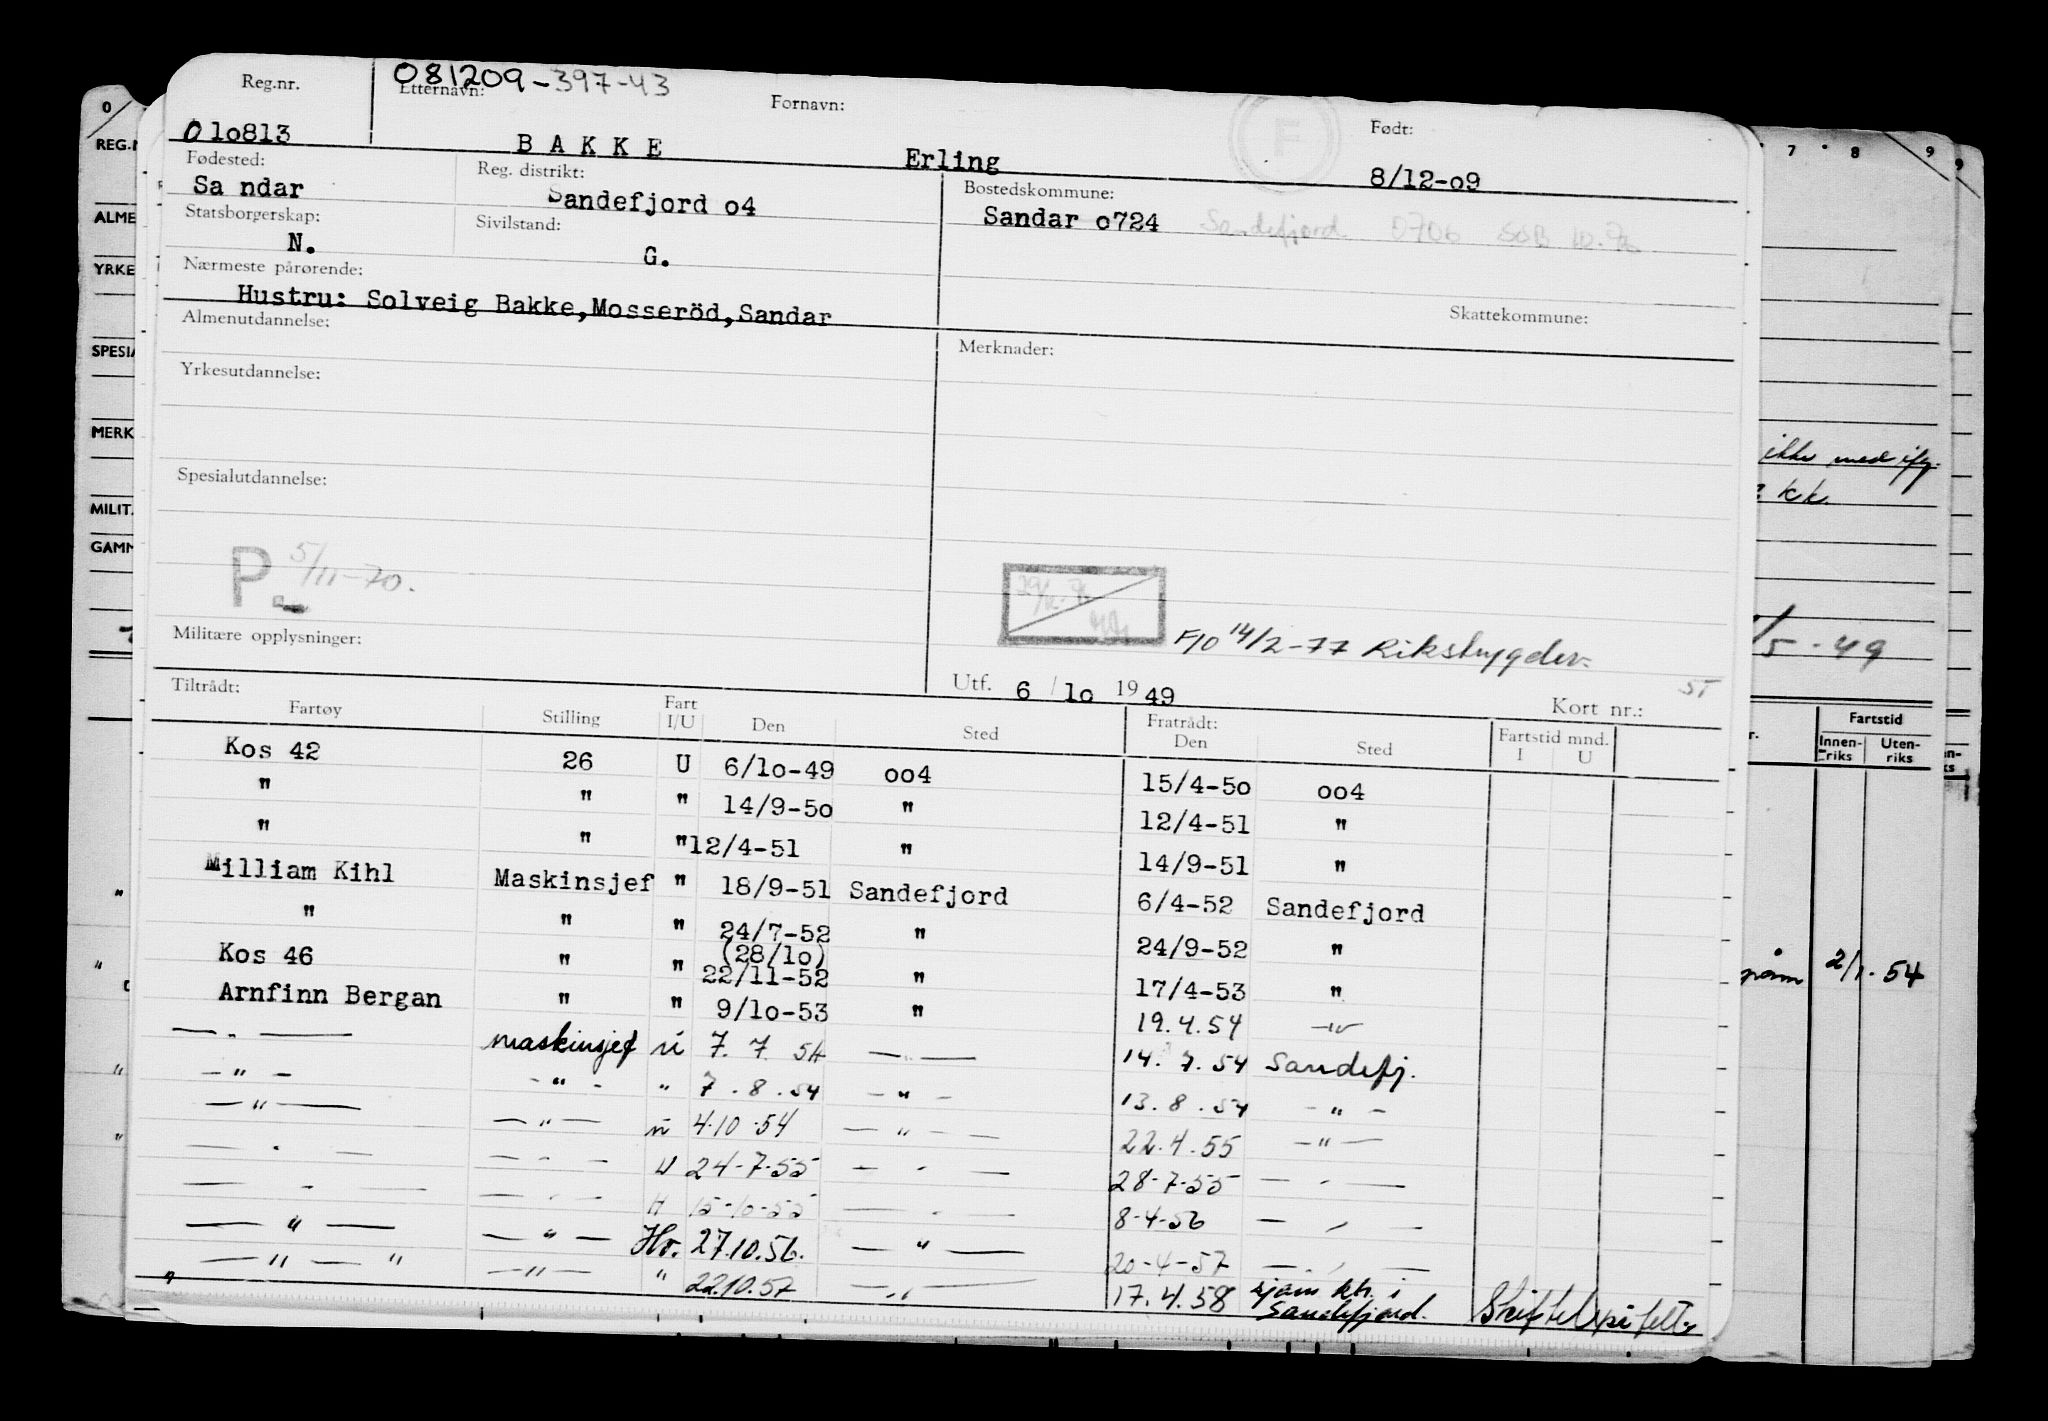 081209-397-43
Reg.nr. Etternavn: Fornavn: Født:
010813 BAKKE Erling 8/12-09
Fødested: Reg. distrikt: Bostedskommune:
Sa ndar Sandefjord o4 Sandar o724 Sandefjord 0706
Statsborgerskap: Sivilstand:
N. G.
Nærmeste pårørende:
Hustru: Solveig Bakke,Mosseröd,Sandar Skattekommune:
Almenutdannelse: Merknader:
Yrkesutdannelse:
Spesialutdannelse:
P 5/11-70.
F
Militære opplysninger: F/O 14/2-77 Rikstrygdev.
Utf. 6 / lo 19 49 Kort nr.: ST
Tiltrådt: Fratrådt:
Fartøy Stilling Fart I/U Den Sted Den Sted Fartstid mnd. I U
Kos 42 26 U 6/lo-49 oo4 15/4-5o oo4
" " " 14/9-5o " 12/4-51 "
" " " 12/4-51 " 14/9-51 "
William Kihl Maskinsjef " 18/9-51 Sandefjord 6/4-52 Sandefjord
" " " 24/7-52 " 24/9-52 "
(28/lo)
Kos 46 " " 22/11-52 " 17/4-53 "
Arnfinn Bergan " " 9/lo-53 " 19.4.54 -"-
— " — maskinsjef u 7. 7. 54 — " — 14. 7. 54 Sandefj.
— " — - " - " 7. 8. 54 — " — 13. 8. 54 - " -
— " — — " — u 4.10.54 — " — 22.4.55 — " —
— " — — " — U 24-7-55 — " — 28-7-55 — " —
— " — — " — " 15-10-55 — " — 8-4-56 — " —
— " — — " — Hv. 27.10.56. — " — 20-4-57 — " —
— " — " — " — " 22.10.57 — " — 17.4.58 sjøm. ktr. i Sandefjord. Skiftet på felt.
0
REG.N
ALME
YRKE
SPESIA
MERK
MILIT.
GAMM
7 8 9
9
ikke med
kk.
/5 - 49
Fartstid
Innen-riks Uten-riks
2/1-54